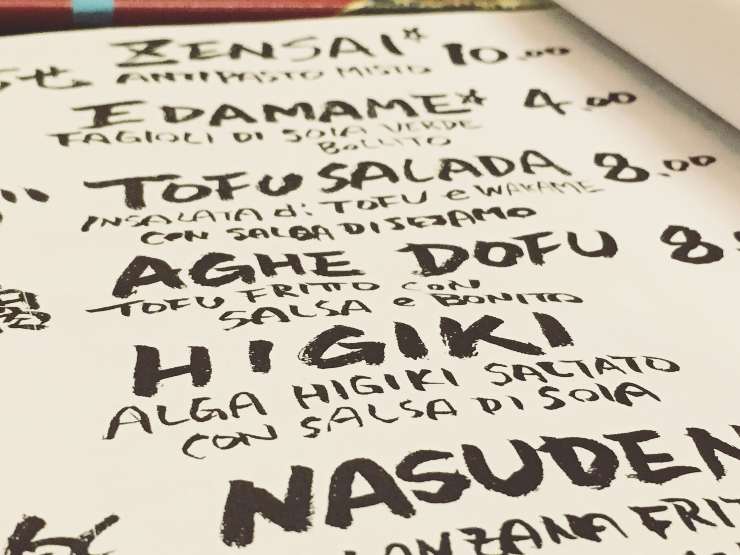 せ ZENSAI* 10.00
ANTIPASTO MISTO
EDAMAME* 4.00
FAGIOLI DI SOIA VERDE
BOLLITO
TOFU SALADA 8.00
INSALATA di TOFU e WAKAME
CON SALSA DI SESAMO
AGHE DOFU 8
TOFU FRITTO CON
SALSA e BONITO
HIGIKI
ALGA HIGIKI SALTATO
CON SALSA DI SOIA
NASUDEN